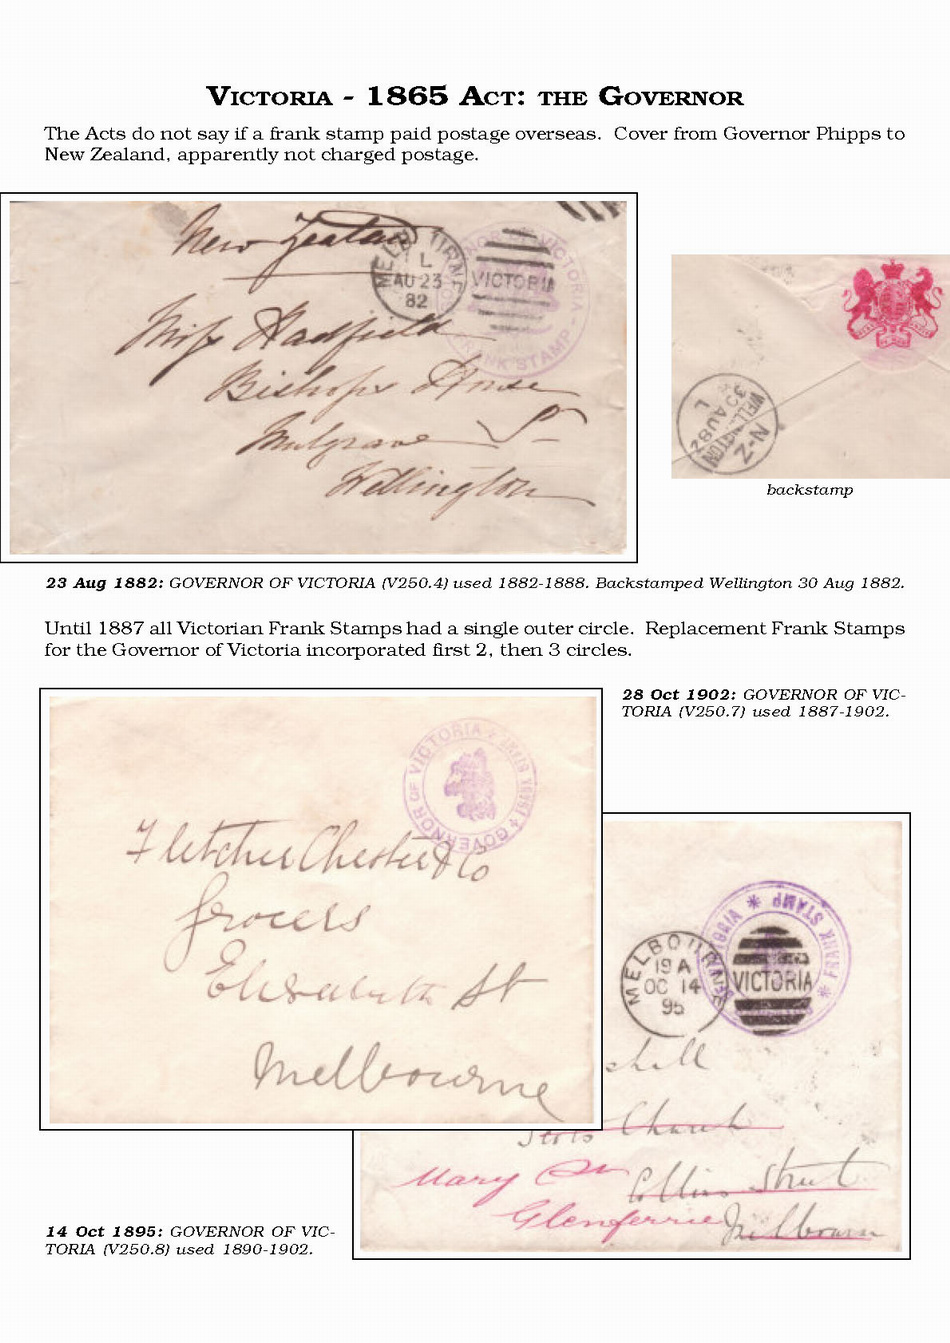 VICTORIA - 1865 ACT: THE GOVERNOR
The Acts do not say if a frank stamp paid postage overseas. Cover from Governor Phipps to
New Zealand, apparently not charged postage.
New Zealand
MELBOURNE
1 L
AU 23
82
VICTORIA
FRANK STAMP
VICTORIA
Miss Hadfield
Bishops House
Mulgrave St
Wellington
WELLINGTON
N-Z
30 AU 82
L
backstamp
23 Aug 1882: GOVERNOR OF VICTORIA (V250.4) used 1882-1888. Backstamped Wellington 30 Aug 1882.
Until 1887 all Victorian Frank Stamps had a single outer circle. Replacement Frank Stamps
for the Governor of Victoria incorporated first 2, then 3 circles.
28 Oct 1902: GOVERNOR OF VIC-
TORIA (V250.7) used 1887-1902.
GOVERNOR OF VICTORIA
Fletcher Chester & Co
Grocers
Elizabeth St
Melbourne
MELBOURNE
19 A
OC 14
95
VICTORIA
FRANK STAMP
shell
Scots Church
Mary St
Collins Street
Glenferrie
Melbourne
14 Oct 1895: GOVERNOR OF VIC-
TORIA (V250.8) used 1890-1902.